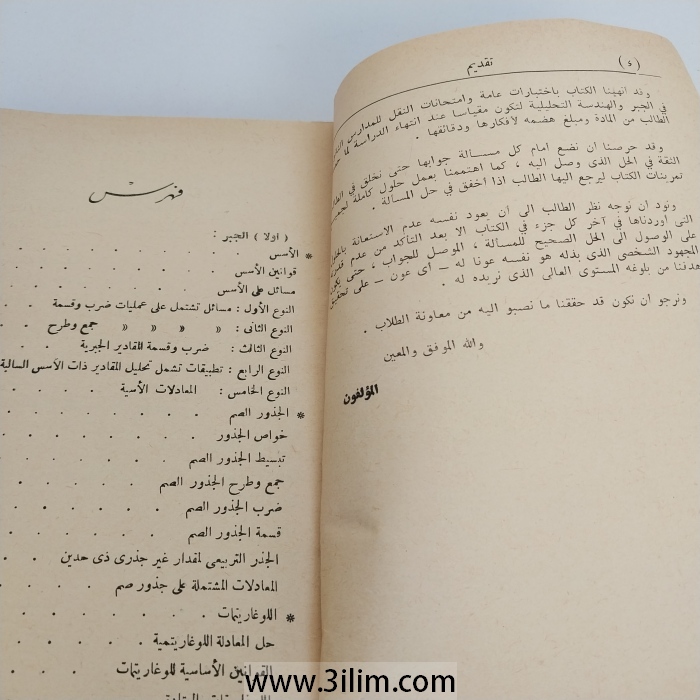 ( ٤ ) تقديم
وقد انهينا الكتاب باختبارات عامة وامتحانات النقل للمدارس
في الجبر والهندسة التحليلية لتكون مقياسا عند انتهاء الدراسة لما
الطالب من المادة ومبلغ هضمه لأفكارها ودقائقها .
وقد حرصنا ان نضع امام كل مسألة جوابها حتى نخلق في
الثقة في الحل الذى وصل اليه ، كما اهتممنا بعمل حلول كاملة
تمرينات الكتاب ليرجع اليها الطالب اذا اخفق في حل المسألة .
ونود ان نوجه نظر الطالب الى ان يعود نفسه عدم الاستعانة
التى أوردناها في آخر كل جزء في الكتاب الا بعد التأكد من عدم
على الوصول الى الحل الصحيح للمسألة ، الموصل للجواب ، حتى
المجهود الشخصى الذى بذله هو نفسه عونا له — أى عون — على تحقيق
هدفنا من بلوغه المستوى العالى الذى نريده له .
ونرجو ان نكون قد حققنا ما نصبو اليه من معاونة الطلاب .
والله الموفق والمعين
المؤلفون
فهرس
( اولا ) الجبر :
* الأسس
قوانين الأسس
مسائل على الأسس
النوع الأول : مسائل تشتمل على عمليات ضرب وقسمة
النوع الثانى : » » » » جمع وطرح
النوع الثالث : ضرب وقسمة للمقادير الجبرية
النوع الرابع : تطبيقات تشمل تحليل المقادير ذات الأسس السالبة
النوع الخامس : المعادلات الأسية
* الجذور الصم
خواص الجذور
تبسيط الجذور الصم
جمع وطرح الجذور الصم
ضرب الجذور الصم
قسمة الجذور الصم
الجذر التربيعى لمقدار غير جذرى ذى حدين
المعادلات المشتملة على جذور صم
* اللوغاريتمات
حل المعادلة اللوغاريتمية
القوانين الأساسية للوغاريتمات
www.3ilim.com